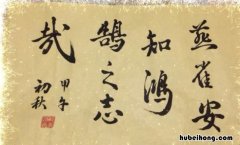 燕雀安
知鸿
鹄之志
哉
甲午
初秋
www.hubeihong.com